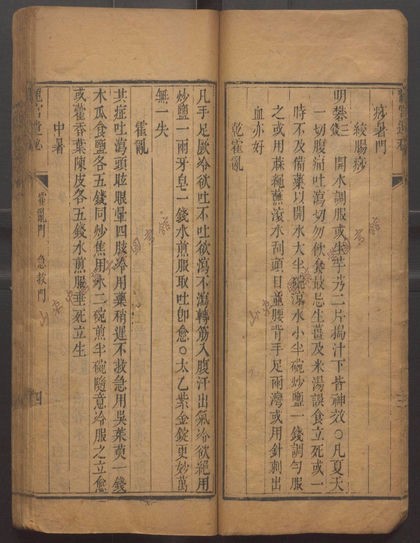 痧暑門
絞腸痧
明礬三錢 開水調服或生芋艿二片搗汁下皆神效○凡夏天
一切腹痛吐瀉切勿飲食最忌生薑及米湯誤食立死或一
時不及備藥以開水大半碗滾水小半碗炒鹽一錢調勻服
之或用蔴繩蘸滾水刮頭目並腰背手足兩灣或用針刺出
血亦好
乾霍亂
凡手足厥冷欲吐不吐欲瀉不瀉轉筋入腹汗出氣冷欲絕用
炒鹽一兩牙皂一錢水煎服取吐即愈○太乙紫金錠更妙萬
無一失
霍亂
其症吐瀉頭眩眼暈四肢冷用藥稍遲不救急用吳茱萸一錢
木瓜食鹽各五錢同炒焦用水三碗煎半碗隨意冷服之立愈
或霍香葉陳皮各五錢水煎服垂死立生
中暑
霍亂門 急救門
四